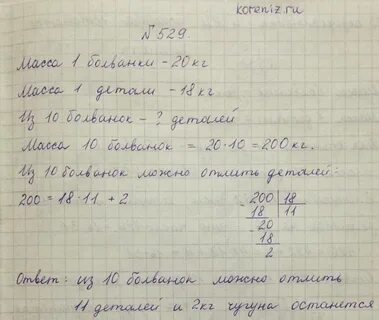 koreniz.ru
№529.
Масса 1 болванки - 20 кг
Масса 1 детали - 18 кг
Из 10 болванок - ? деталей
Масса 10 болванок = 20·10 = 200 кг.
Из 10 болванок можно отлить деталей:
200 = 18·11 + 2
- 200 | 18
18 | 11
- 20
18
2
Ответ: из 10 болванок можно отлить
11 деталей и 2кг чугуна останется